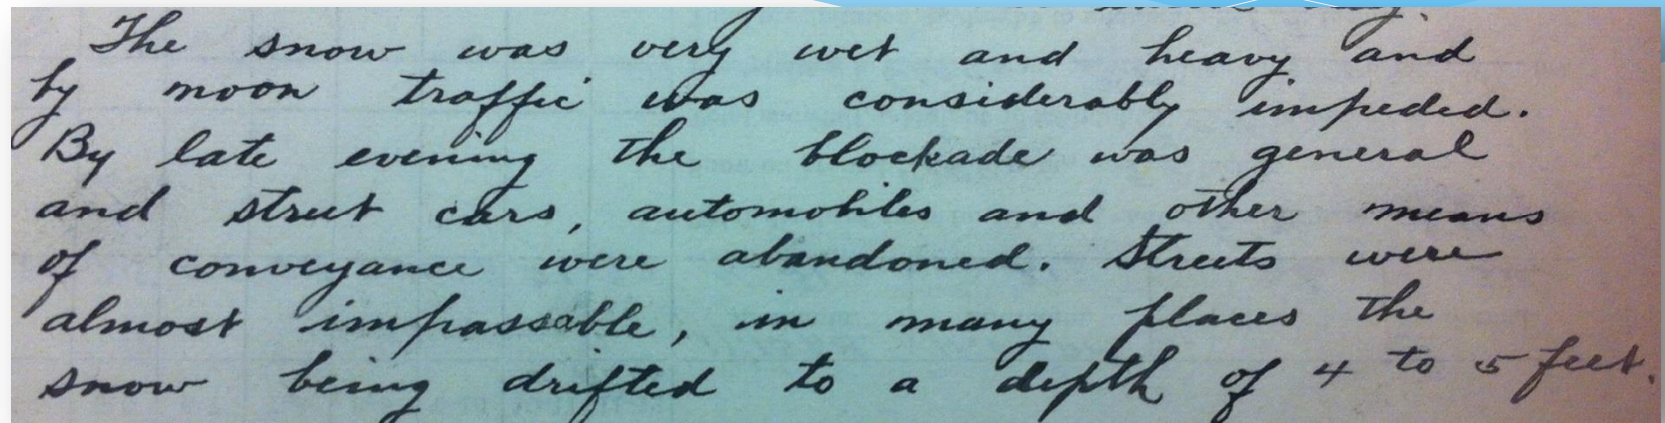 The snow was very wet and heavy and
by noon traffic was considerably impeded.
By late evening the blockade was general
and street cars, automobiles and other means
of conveyance were abandoned. Streets were
almost impassable, in many places the
snow being drifted to a depth of 4 to 5 feet.